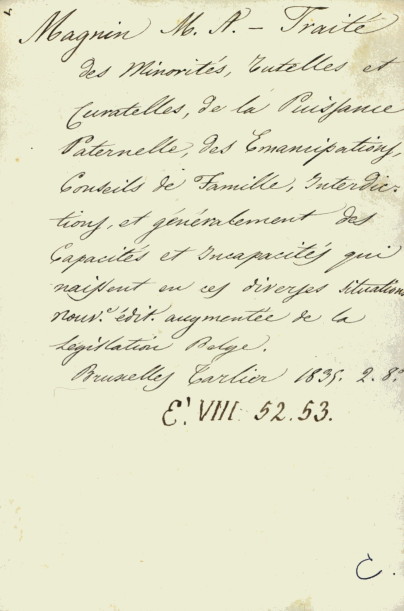 Magnin M. A. - Traité
des Minorités, Tutelles et
Curatelles, de la Puissance
Paternelle, des Emancipations,
Conseils de Famille, Interdic-
tions, et généralement des
Capacités et Incapacités qui
naissent en ces diverses situations
nouv.e édit. augmentée de la
Législation Belge.
Bruxelles Tarlier 1835. 2. 8.o
E'. VIII 52.53.
C.